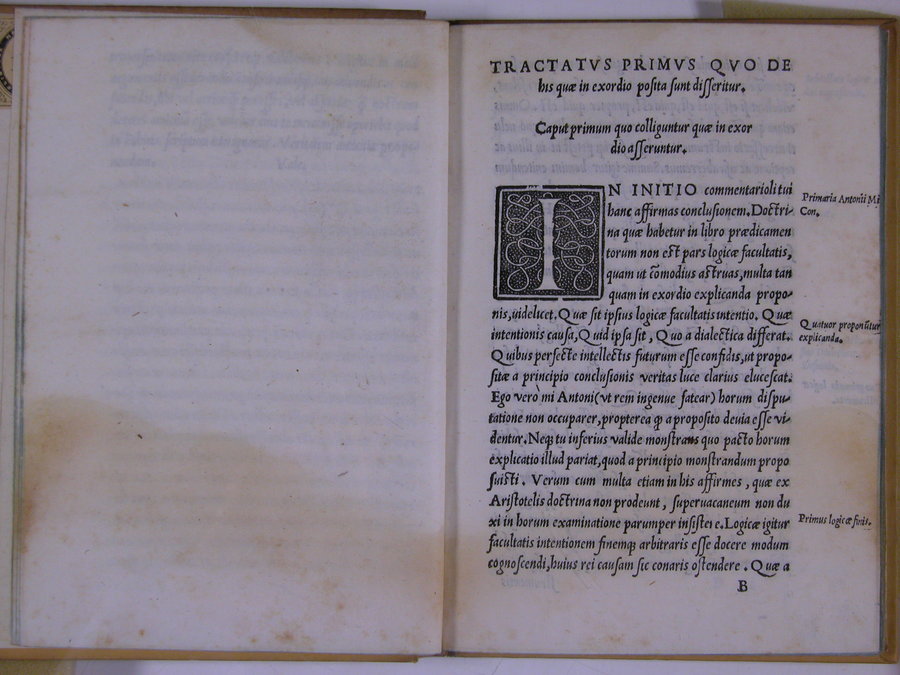 TRACTATVS PRIMVS QVO DE
his quæ in exordio posita sunt disseritur.
Caput primum quo colliguntur quæ in exor
dio asseruntur.
IN INITIO commentarioli tui
hanc affirmas conclusionem. Doctri-
na quæ habetur in libro prædicamen
torum non est pars logicæ facultatis,
quam ut cōmodius astruas, multa tan
quam in exordio explicanda propo-
nis, uidelicet. Quæ sit ipsius logicæ facultatis intentio. Quæ
intentionis causa, Quid ipsa sit, Quo a dialectica differat.
Quibus perfecte intellectis futurum esse confidis, ut propo-
sitæ a principio conclusionis veritas luce clarius elucescat.
Ego vero mi Antoni (vt rem ingenue fatear) horum dispu-
tatione non occuparer, propterea ꝙ a proposito deuia esse vi-
dentur. Neqꝫ tu inferius valide monstrans quo pacto horum
explicatio illud pariat, quod a principio monstrandum propo
suisti. Verum cum multa etiam in his affirmes, quæ ex
Aristotelis doctrina non prodeunt, superuacaneum non du
xi in horum examinatione parumper insistere. Logicæ igitur
facultatis intentionem finemqꝫ arbitraris esse docere modum
cognoscendi, huius rei causam sic conaris ostendere. Quæ a
B
Primaria Antonii Mi
Con.
Quatuor proponūtur
explicanda.
Primus logicæ finis.